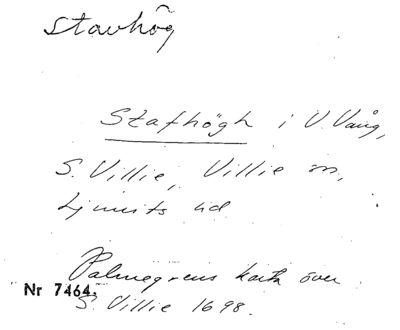 Stavhög
Stafhögh i V. Vång,
S. Villie, Villie sn,
Ljunits hd
Palmegrens karta över
Nr 7464.
S. Villie 1698.